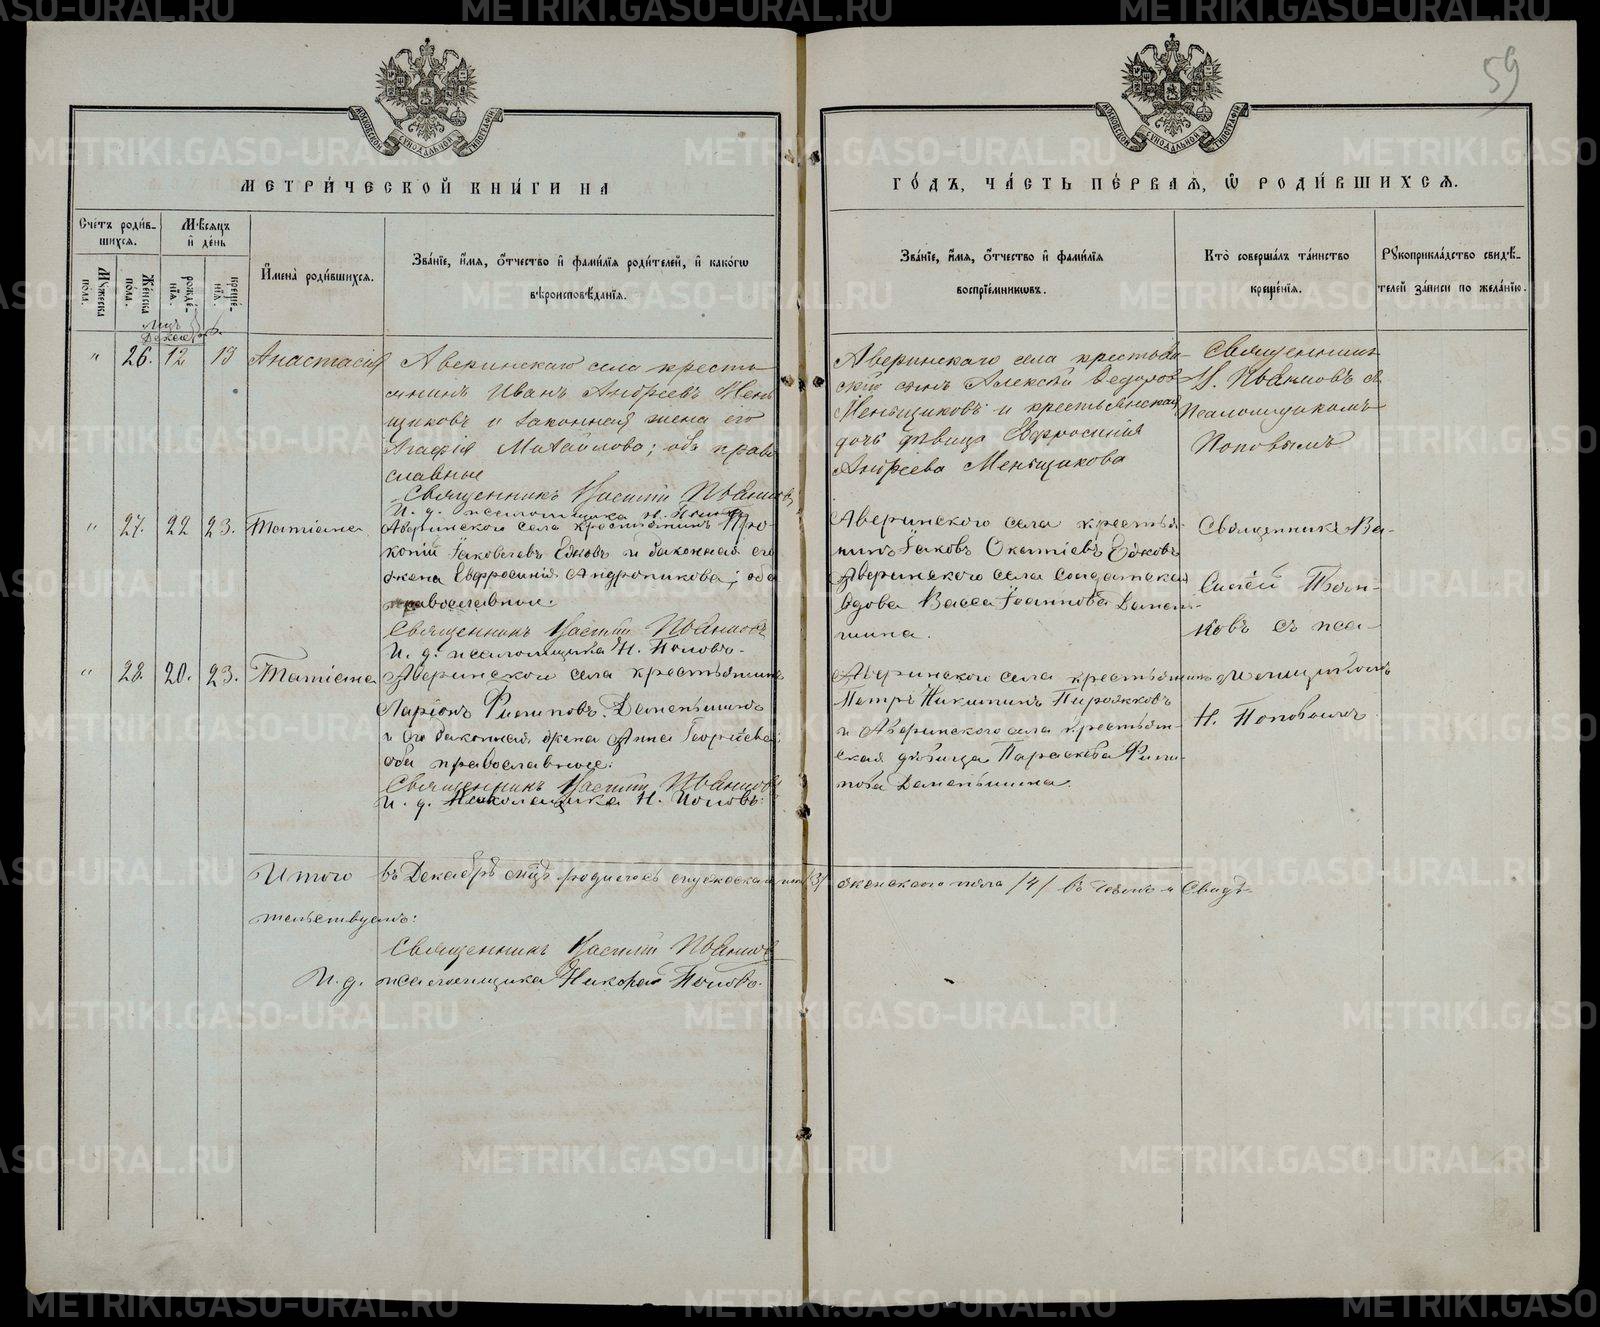 METRIKI.GASO-URAL.RU
59
МОСКОВСКОЙ СѴНОДАЛЬНОЙ ТИПОГРАФІИ
МОСКОВСКОЙ СѴНОДАЛЬНОЙ ТИПОГРАФІИ
МЕТРИ́ЧЕСКОЙ КНИ́ГИ НА
ГО́ДЪ, ЧА́СТЬ ПЕ́РВАѦ, Ѡ РОДИ́ВШИХСѦ.
Сче́тъ роди́в-
шихсѧ.
Мѣ́сѧцъ
и де́нь
Мꙋжеска пола̀.
Же́нска пола̀.
рожде́-нїѧ.
креще́-нїѧ.
Имена̀ роди́вшихсѧ.
Зва́нїе, и́мѧ, о́тчество и фами́лїѧ роди́телей, и како́гѡ
вѣроисповѣ́данїѧ.
Зва́нїе, и́мѧ, о́тчество и фами́лїѧ
воспрїе́мникѡвъ.
Кто̀ соверша́лъ та́инство
креще́нїѧ.
Рꙋкоприкла́дство свидѣ́-
телей за́писи по жела́нїю.
Декабрь
„ 26. 12 13 Анастасія
Аверинскаго села кресть
янинъ Иванъ Андреевъ Мень
щиковъ и законная жена его
Агафія Михайлова; оба право
славные
Священникъ Василій Иванновъ
И. д. псаломщика Н. Поповъ
Аверинскаго села крестьян-
скій сынъ Алексѣй Ѳедоровъ
Меньщиковъ и крестьянская
дочь дѣвица Евфросинія
Андреева Меньщикова
Священникъ
В. Иванновъ съ
Псаломщикомъ
Поповымъ
„ 27. 22 23. Татіана
Аверинскаго села крестьянинъ Про-
копій Іаковлевъ и законная его
жена Евфросинія Андроникова; оба
православные.
Священникъ Василій Иванновъ
И. д. псаломщика Н. Поповъ.
Аверинскаго села крестья-
нинъ Іаковъ
Аверинскаго села солдатская
вдова Васса Іоаннова Дамень-
шина.
Священникъ Ва-
силій Иван-
новъ съ пса-
ломщикомъ
Н. Поповымъ
„ 28. 20. 23. Татіана
Аверинскаго села крестьянинъ
Ларіонъ Филиповъ Даменьшинъ
и его законная жена Анна Георгіева;
оба православные.
Священникъ Василій Иванновъ
И. д. Псаломщика Н. Поповъ.
Аверинскаго села крестьянинъ
Петръ Никитинъ Пирожковъ
и Аверинскаго села крестьян-
ская дѣвица Параскева Фили-
пова Даменьшина.
Итого въ Декабрѣ мцѣ родилось мужеска пола /3/ женскаго пола /4/ въ чемъ и Свидѣ-
тельствуемъ:
Священникъ Василій Иванновъ
И. д. псаломщика Николай Поповъ.